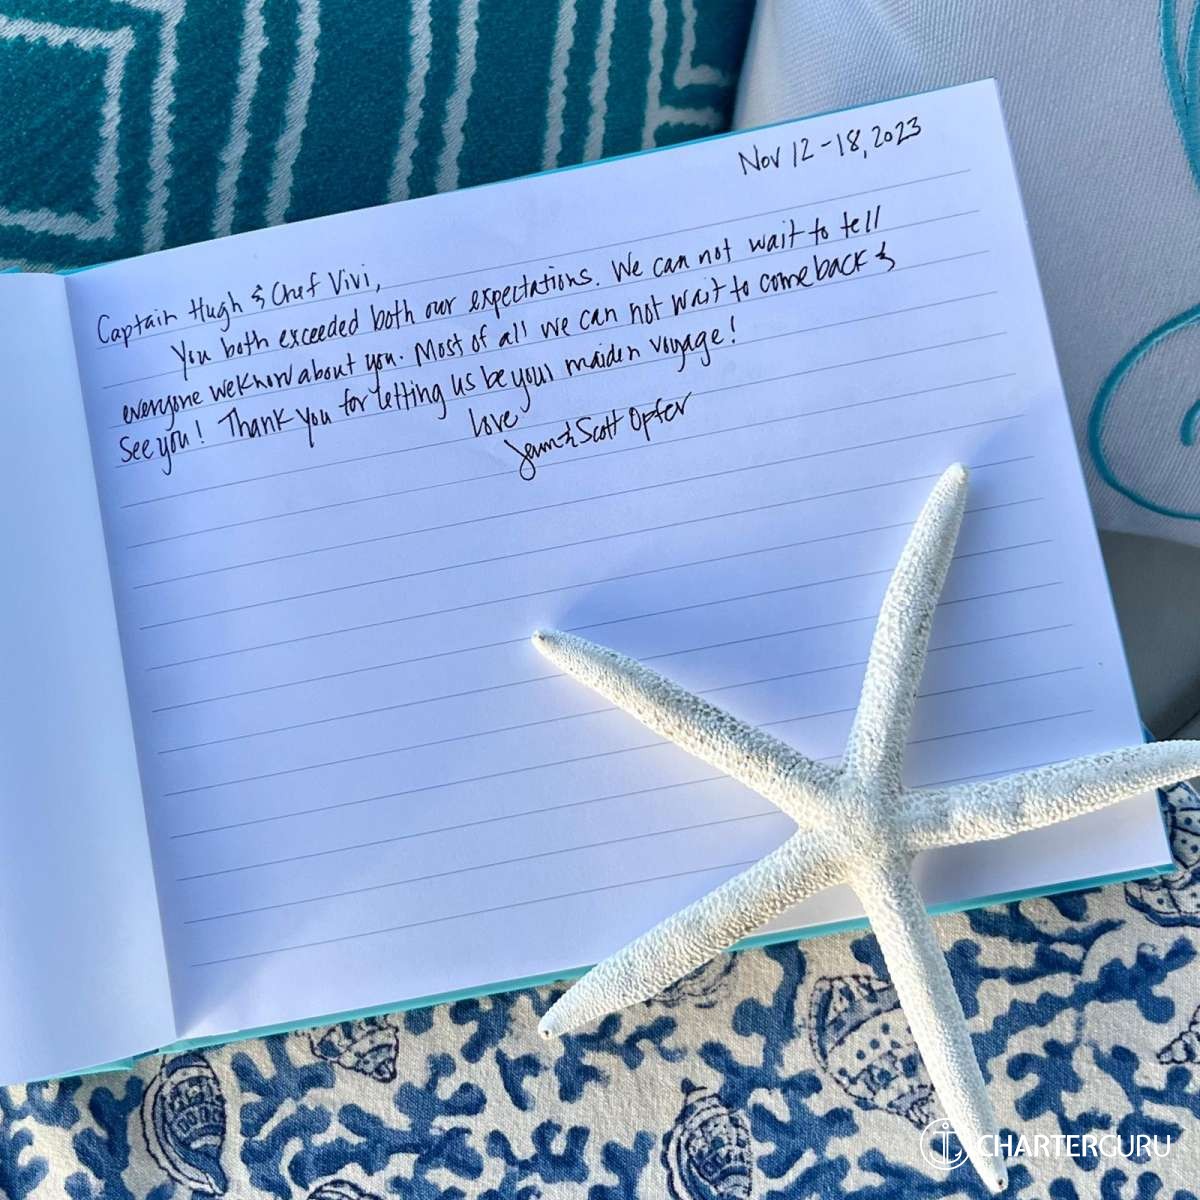 Nov 12-18, 2023
Captain Hugh & Chef Vivi,
You both exceeded both our expectations. We can not wait to tell
everyone we know about you. Most of all we can not wait to come back &
see you! Thank you for letting us be your maiden voyage!
Love
Jenn & Scott Opfer
CHARTERGURU